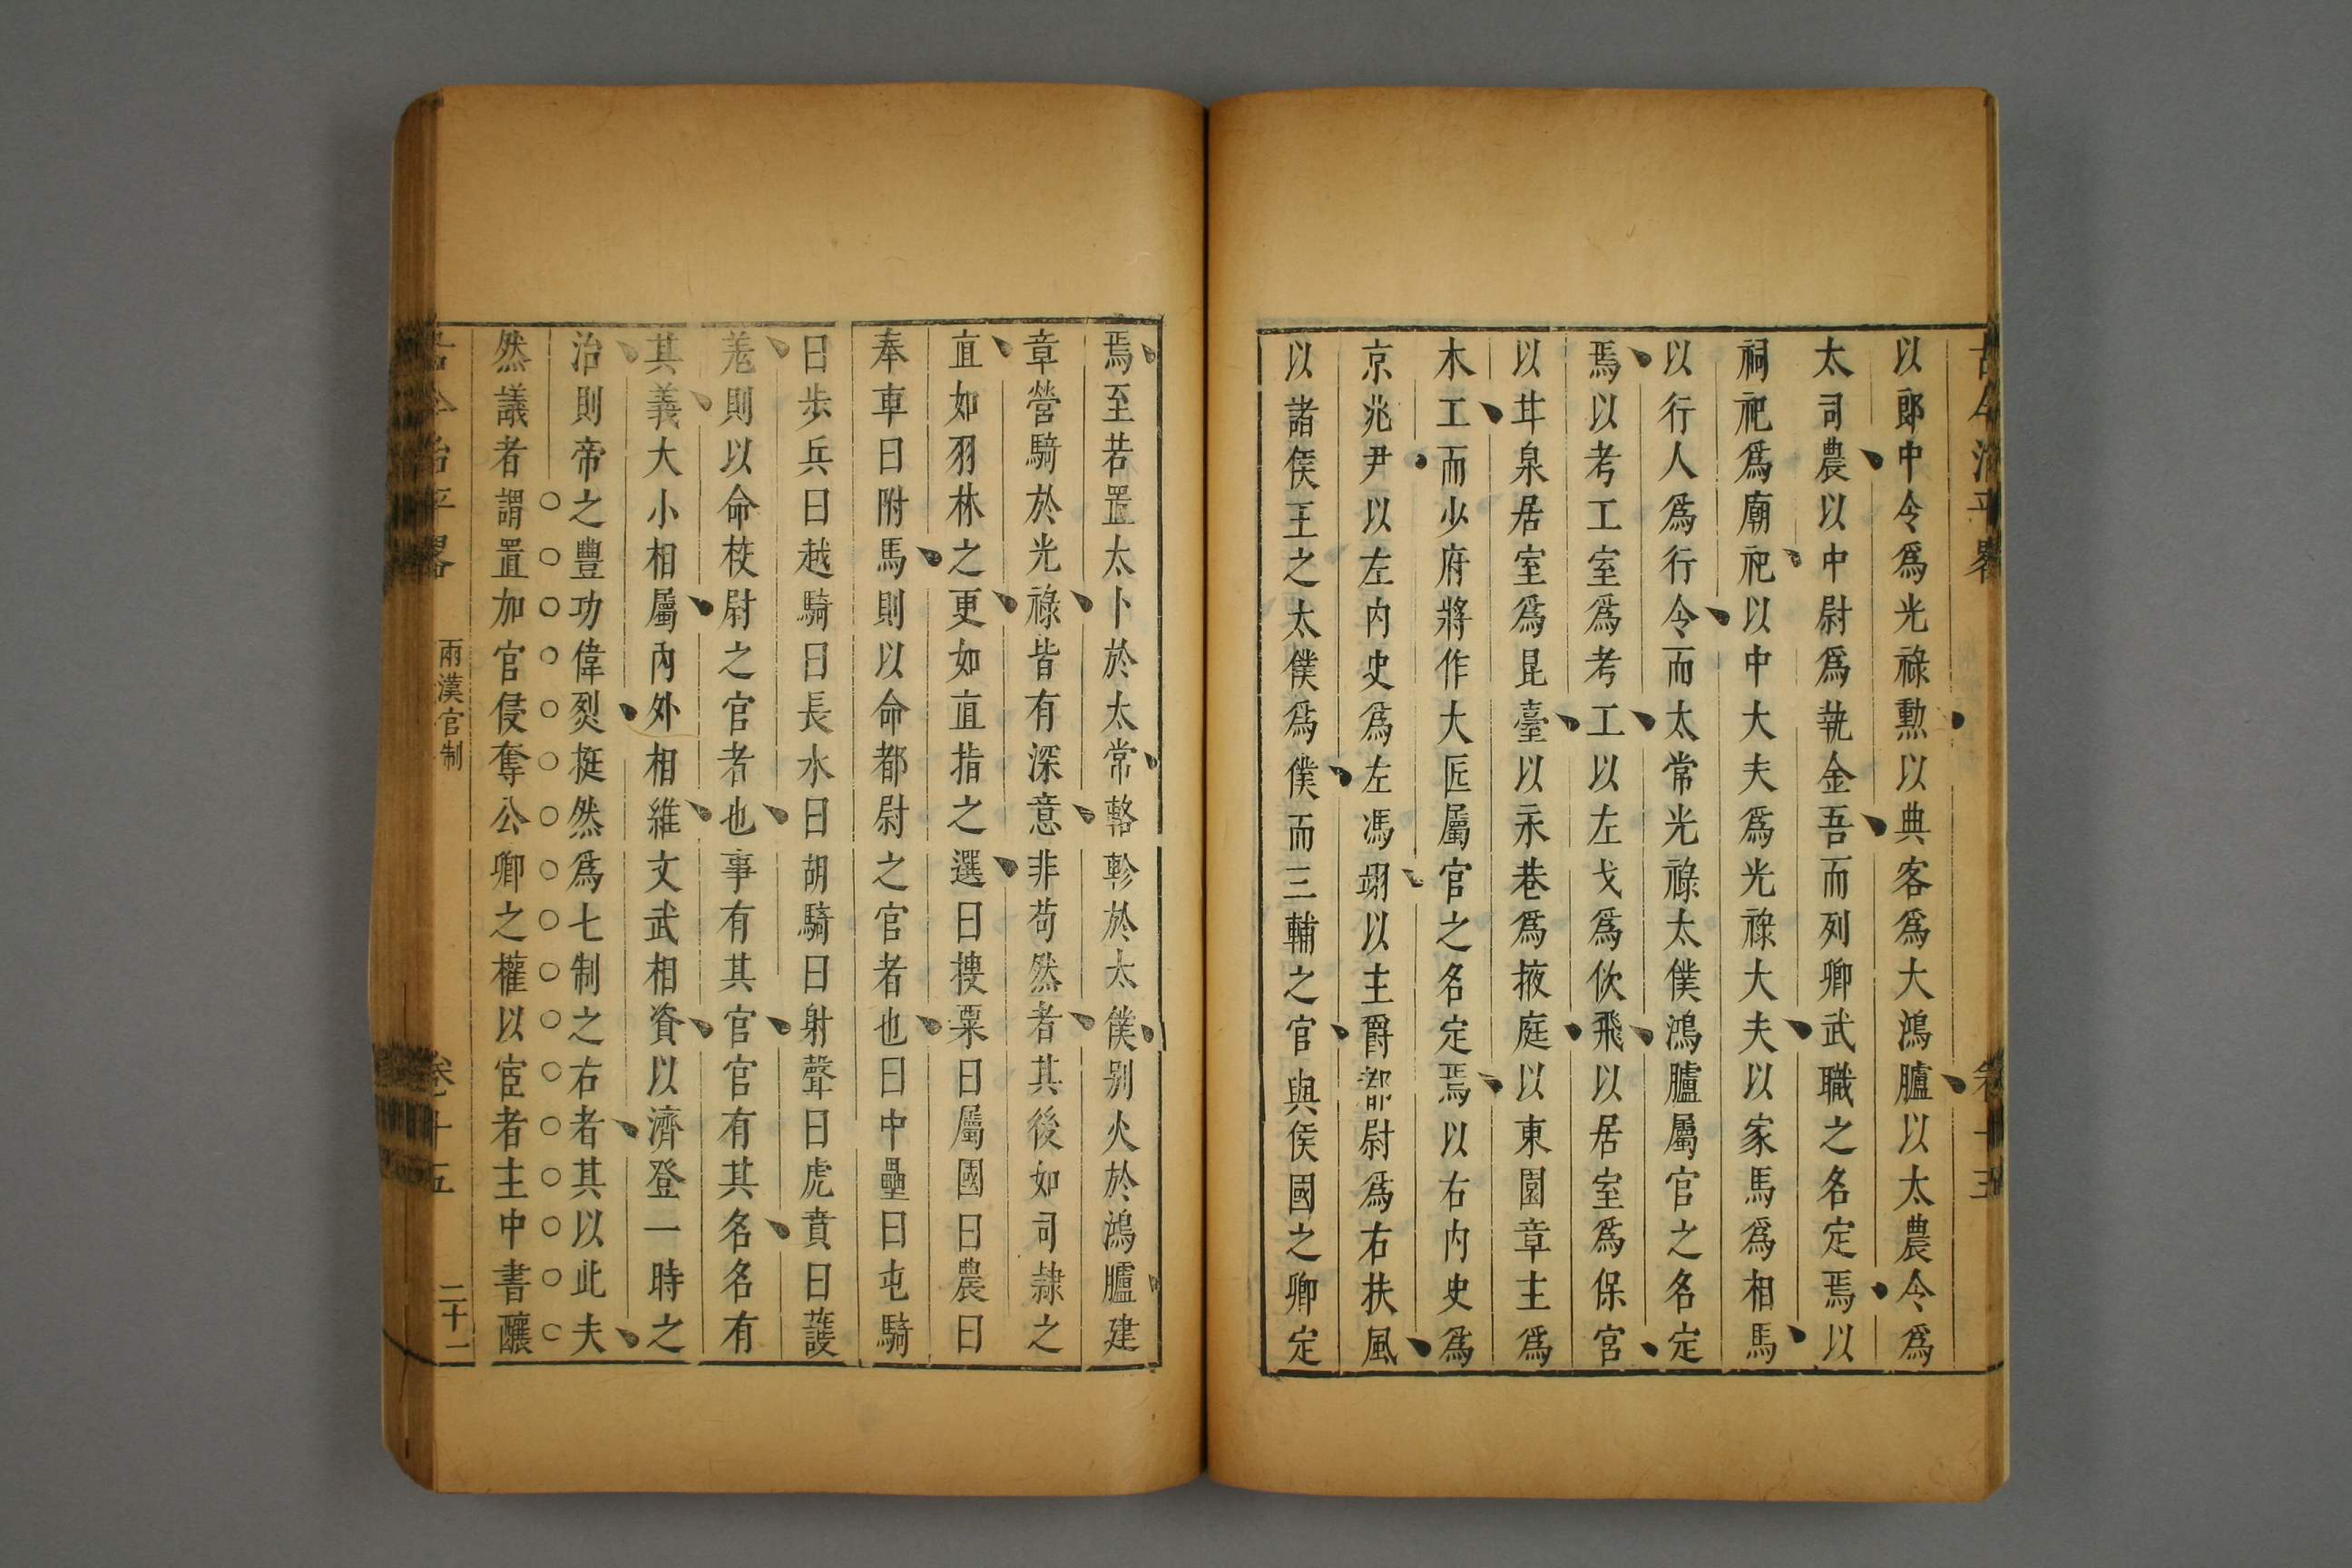 以郎中令爲光祿勲以典客爲大鴻臚以太農令爲
太司農以中尉爲執金吾而列卿武職之名定焉以
祠祀爲廟祀以中大夫爲光祿大夫以家馬爲相馬
以行人爲行令而太常光祿太僕鴻臚屬官之名定
焉以考工室爲考工以左戈爲佽飛以居室爲保宮
以甘泉居室爲昆臺以永巷爲掖庭以東園章主爲
木工而少府將作大匠屬官之名定焉以右内史爲
京兆尹以左内史爲左馮翊以主爵都尉爲右扶風
以諸侯王之太僕爲僕而三輔之官與侯國之卿定
焉至若置太卜於太常輅軫於太僕别火於鴻臚建
章營騎於光祿皆有深意非苟然者其後如司隷之
直如羽林之更如直指之選曰搜粟曰屬國曰農曰
奉車曰附馬則以命都尉之官者也曰中壘曰屯騎
曰歩兵曰越騎曰長水曰胡騎曰射聲曰虎賁曰護
羗則以命校尉之官者也事有其官官有其名名有
其義大小相屬内外相維文武相資以濟登一時之
治則帝之豐功偉烈挺然爲七制之右者其以此夫
然議者謂置加官侵奪公卿之權以宦者主中書釀
古今治平畧 兩漢官制 卷十五 二十二